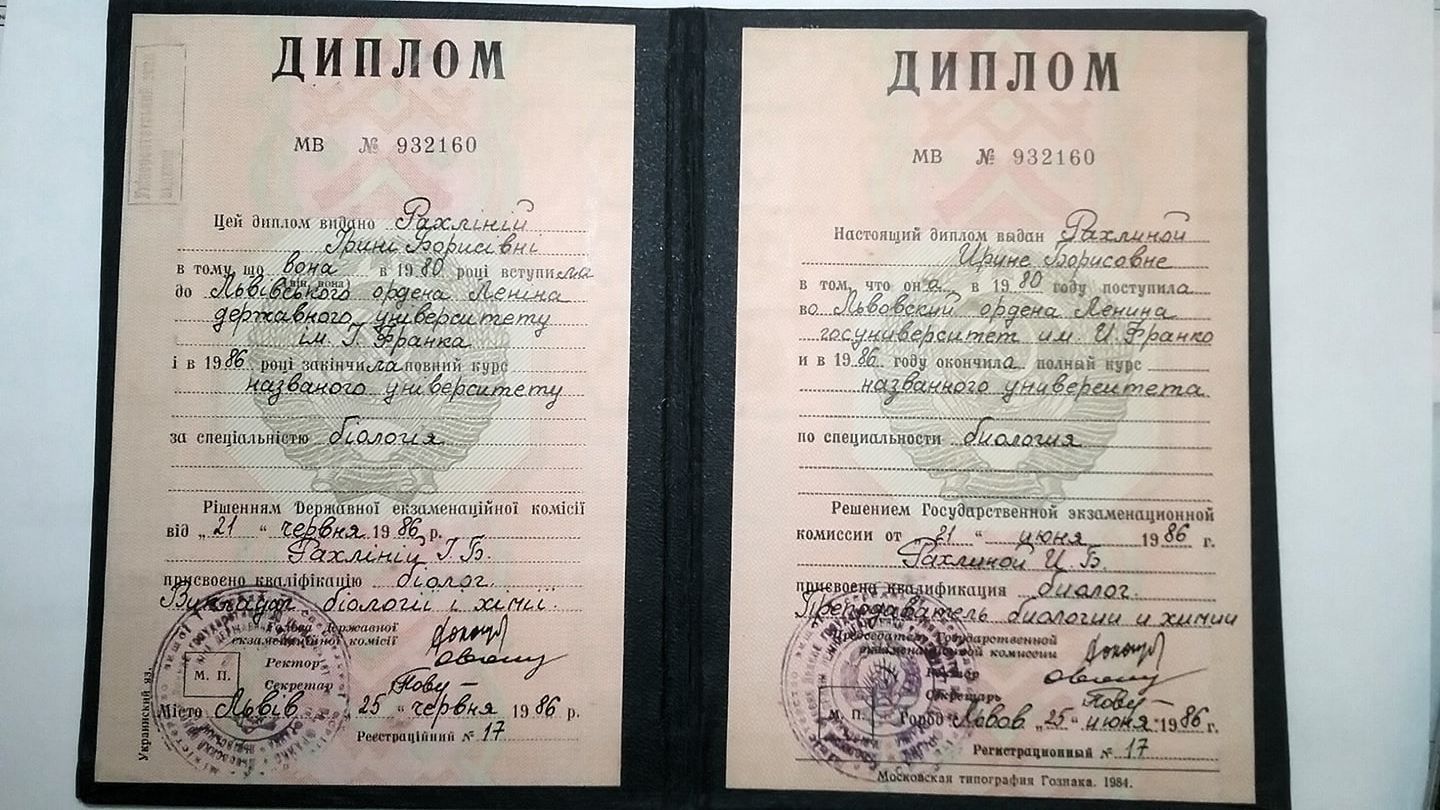 ДИПЛОМ
МВ № 932160
Цей диплом видано Рахліній
Ірині Борисівні
в тому, що вона в 1980 році вступила
(він, вона)
до Львівського ордена Леніна
державного університету
ім. І. Франка
і в 1986 році закінчила повний курс
названого університету
за спеціальністю біологія
Рішенням Державної екзаменаційної комісії
від „21“ червня 1986 р.
Рахліній І. Б.
присвоєно кваліфікацію біолог.
Викладач біології і хімії.
Голова Державної
екзаменаційної комісії
Ректор
М. П.
Секретар
Місто Львів „25“ червня 1986 р.
Реєстраційний № 17
Украинский яз.
ДИПЛОМ
МВ № 932160
Настоящий диплом выдан Рахлиной
Ирине Борисовне
в том, что она в 1980 году поступила
во Львовский ордена Ленина
госуниверситет им. И. Франко
и в 1986 году окончила полный курс
названного университета
по специальности биология
Решением Государственной экзаменационной
комиссии от „21“ июня 1986 г.
Рахлиной И. Б.
присвоена квалификация биолог.
Преподаватель биологии и химии
Председатель Государственной
экзаменационной комиссии
Ректор
Секретарь
М. П. Город Львов „25“ июня 1986 г.
Регистрационный № 17
Московская типография Гознака. 1984.